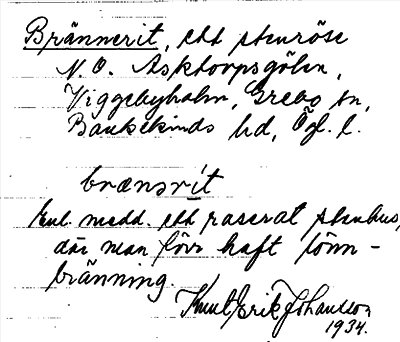 Brännerit, ett stenröse
N.O. Asktorpsgölen,
Viggebyholm, Grebo sn,
Bankekinds hd, Ögl. l.
brænsrít
Enl. medd. ett raserat stenhus,
där man förr haft lönn-
bränning.
Knut Erik Johansson
1934.